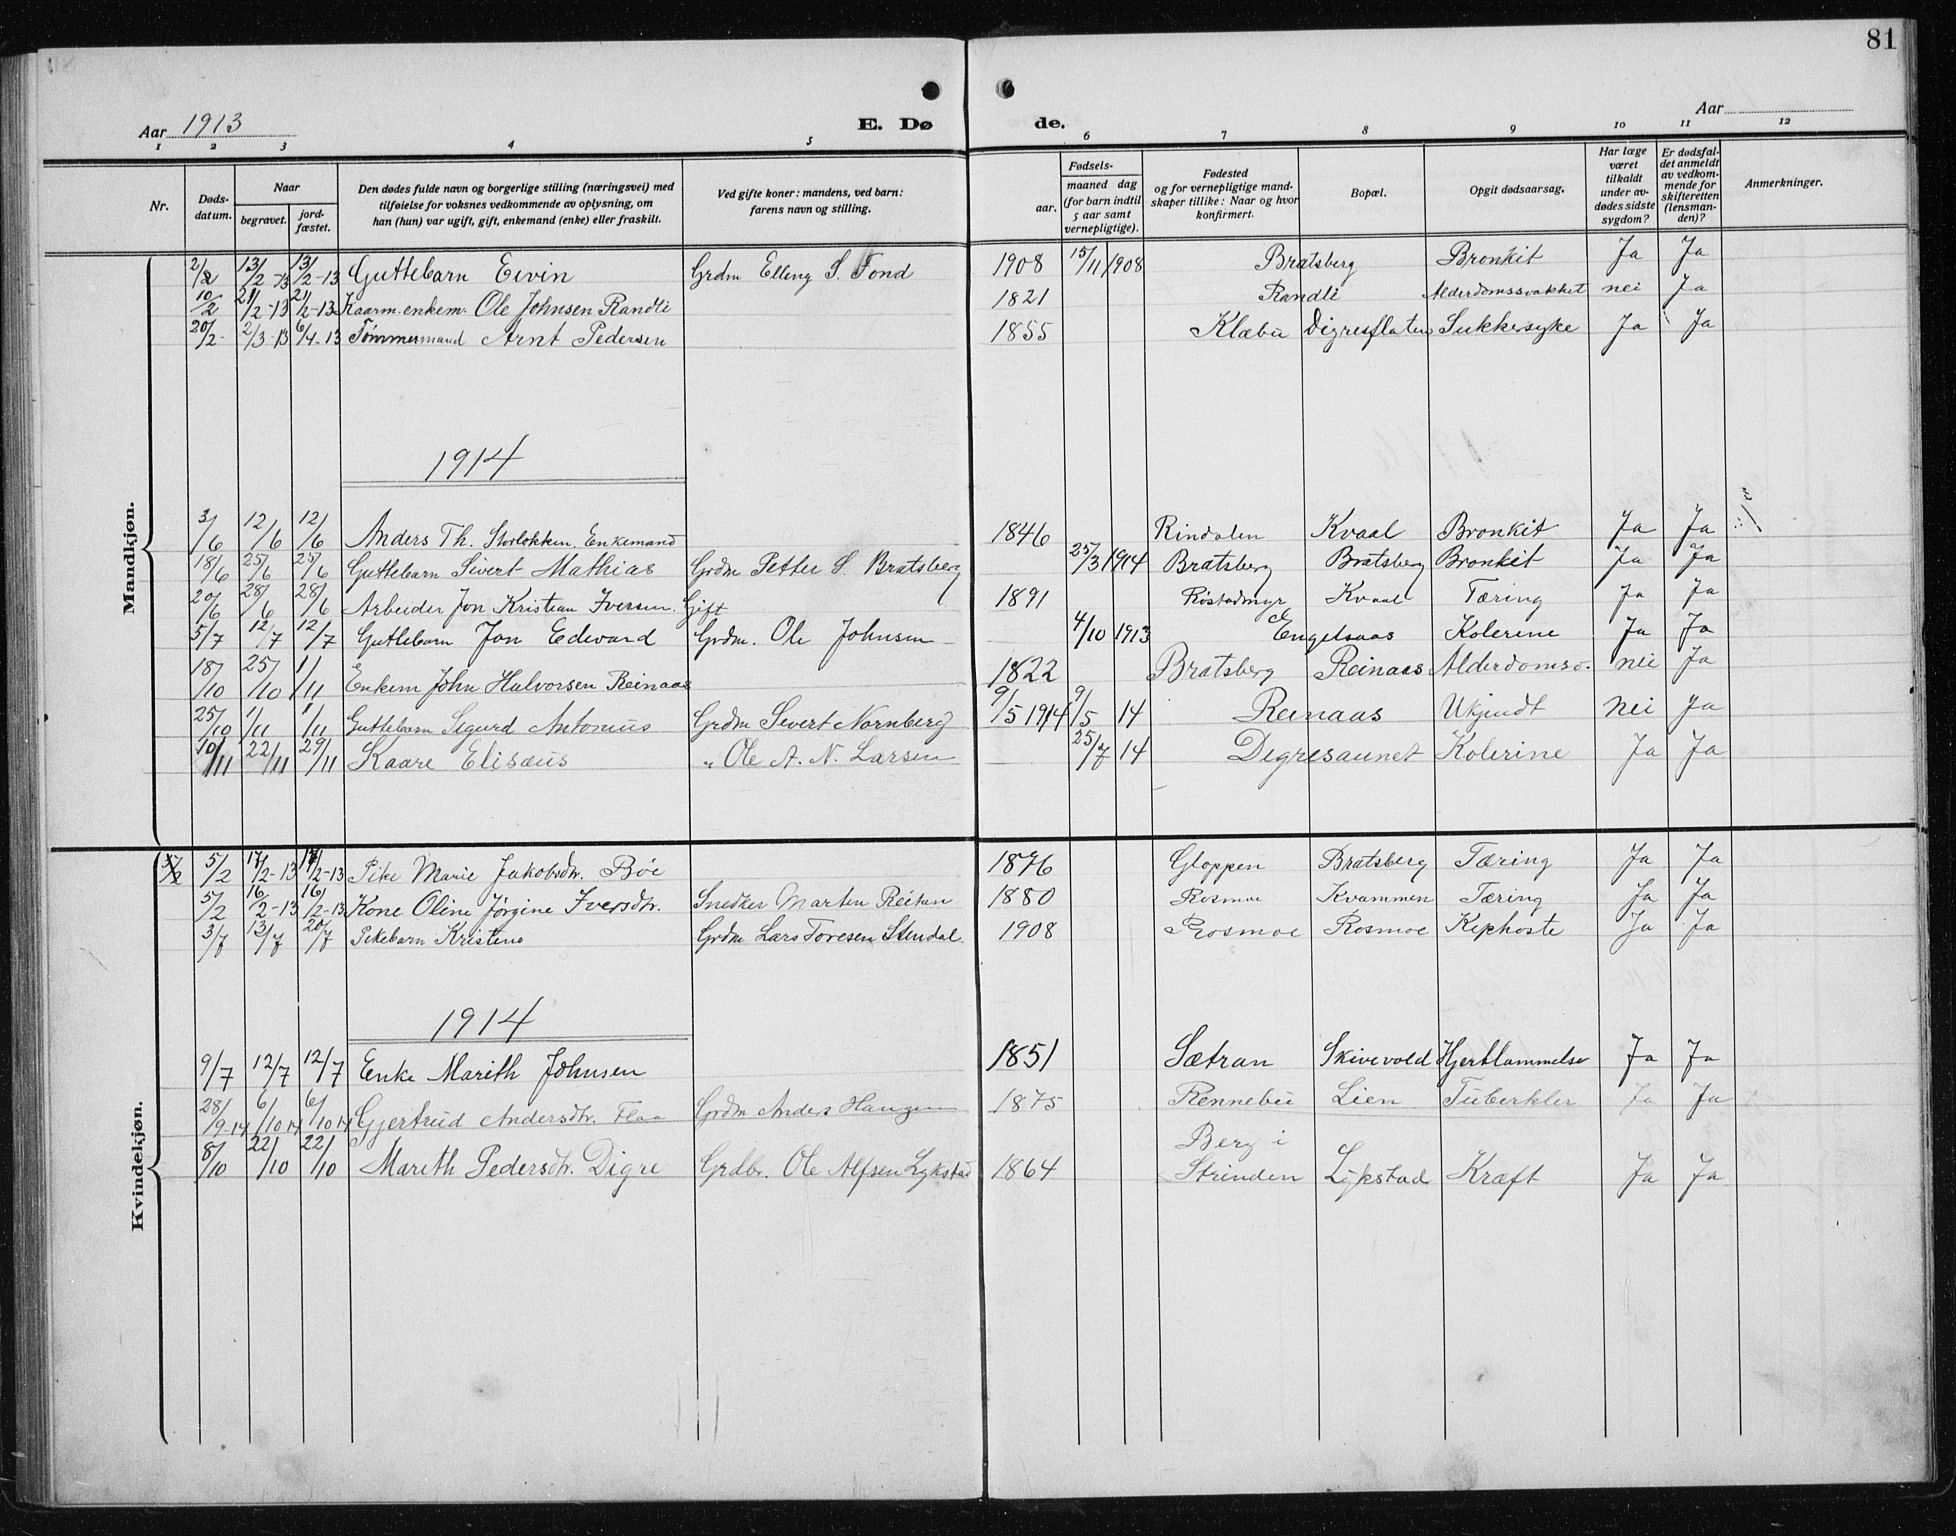 81
Aar 1913
E. Dø
de.
Aar
1 2 3 4 5 6 7 8 9 10 11 12
Nr.
Døds-
datum.
Naar
begravet.
jord-
fæstet.
Den dødes fulde navn og borgerlige stilling (næringsvei) med
tilføielse for voksnes vedkommende av oplysning, om
han (hun) var ugift, gift, enkemand (enke) eller fraskilt.
Ved gifte koner: mandens, ved barn:
farens navn og stilling.
Fødsels-
aar.
maaned dag
(for barn indtil
5 aar samt
vernepligtige).
Fødested
og for vernepligtige mand-
skaper tillike: Naar og hvor
konfirmert.
Bopæl.
Opgit dødsaarsag.
Har læge
været
tilkaldt
under av-
dødes sidste
sygdom?
Er dødsfal-
det anmeldt
av vedkom-
mende for
skifteretten
(lensman-
den)?
Anmerkninger.
Mandkjøn.
2/2 13/2-13 13/2-13 Guttebarn Eivin Grdm Elling S. Fond 1908 15/11 1908 Bratsberg Bronkit Ja Ja
10/2 21/2-13 21/2-13 Kaarm. enkem. Ole Johnsen Randli 1821 Randli Alderdomssvakhet nei Ja
20/2- 2/3-13 6/4-13 Tømmermand Arnt Pedersen 1855 Klæbu Digresflaten Sukkersyke Ja Ja
1914
3/6 12/6 12/6 Anders Th. Storløkken. Enkemand 1846 Rindalen Kvaal Bronkit Ja Ja
18/6 25/6 25/6 Guttebarn Sivert Mathias Grdm Petter S. Bratsberg 25/3 1914 Bratsberg Bratsberg Bronkit Ja Ja
20/6 28/6 28/6 Arbeider Jon Kristian Iversen. Gift 1891 Røstadmyr Kvaal Tæring Ja Ja
5/7 12/7 12/7 Guttebarn Jon Edvard Grdm. Ole Johnsen 4/10 1913 Engelsaas Kolerine Ja Ja
18/10 25/10 1/11 Enkem John Halvorsen Reinaas 1822 Bratsberg Reinaas Alderdomss. nei Ja
25/10 1/11 1/11 Guttebarn Sigurd Antonius Grdm Sivert Nornberg 9/5 1914 9/5 14 Reinaas Ukjendt Nei Ja
10/11 22/11 29/11 Kaare Elisæus " Ole A. N. Larsen 25/7 14 Digresaunet Kolerine Ja Ja
Kvindekjøn.
5/2 17/2-13 17/2-13 Pike Marie Jakobsdtr. Bøe 1896 Gloppen Bratsberg Tæring Ja Ja
5/2 16/2-13 16/2-13 Kone Oline Jørgine Iversdtr. Snedker Martin Reitan 1880 Rosmoe Kvammen Tæring Ja Ja
3/7 13/7 20/7 Pikebarn Kristine Grdm Lars Toresen Stendal 1908 Rosmoe Rosmoe Kighoste Ja Ja
1914
9/7 12/7 12/7 Enke Marith Johnsen 1851 Sætran Skivevold Hjertlammelse Ja Ja
28/9 14 6/10 14 6/10 14 Gjertrud Andersdtr. Flaa Grdm Anders Haugen 1875 Rennebu Lien Tuberkler Ja Ja
8/10 22/10 22/10 Marith Pedersdtr. Digre Grdbr. Ole Alfsen Lykstad 1864 Berg i
Strinden Lykstad Kræft Ja Ja